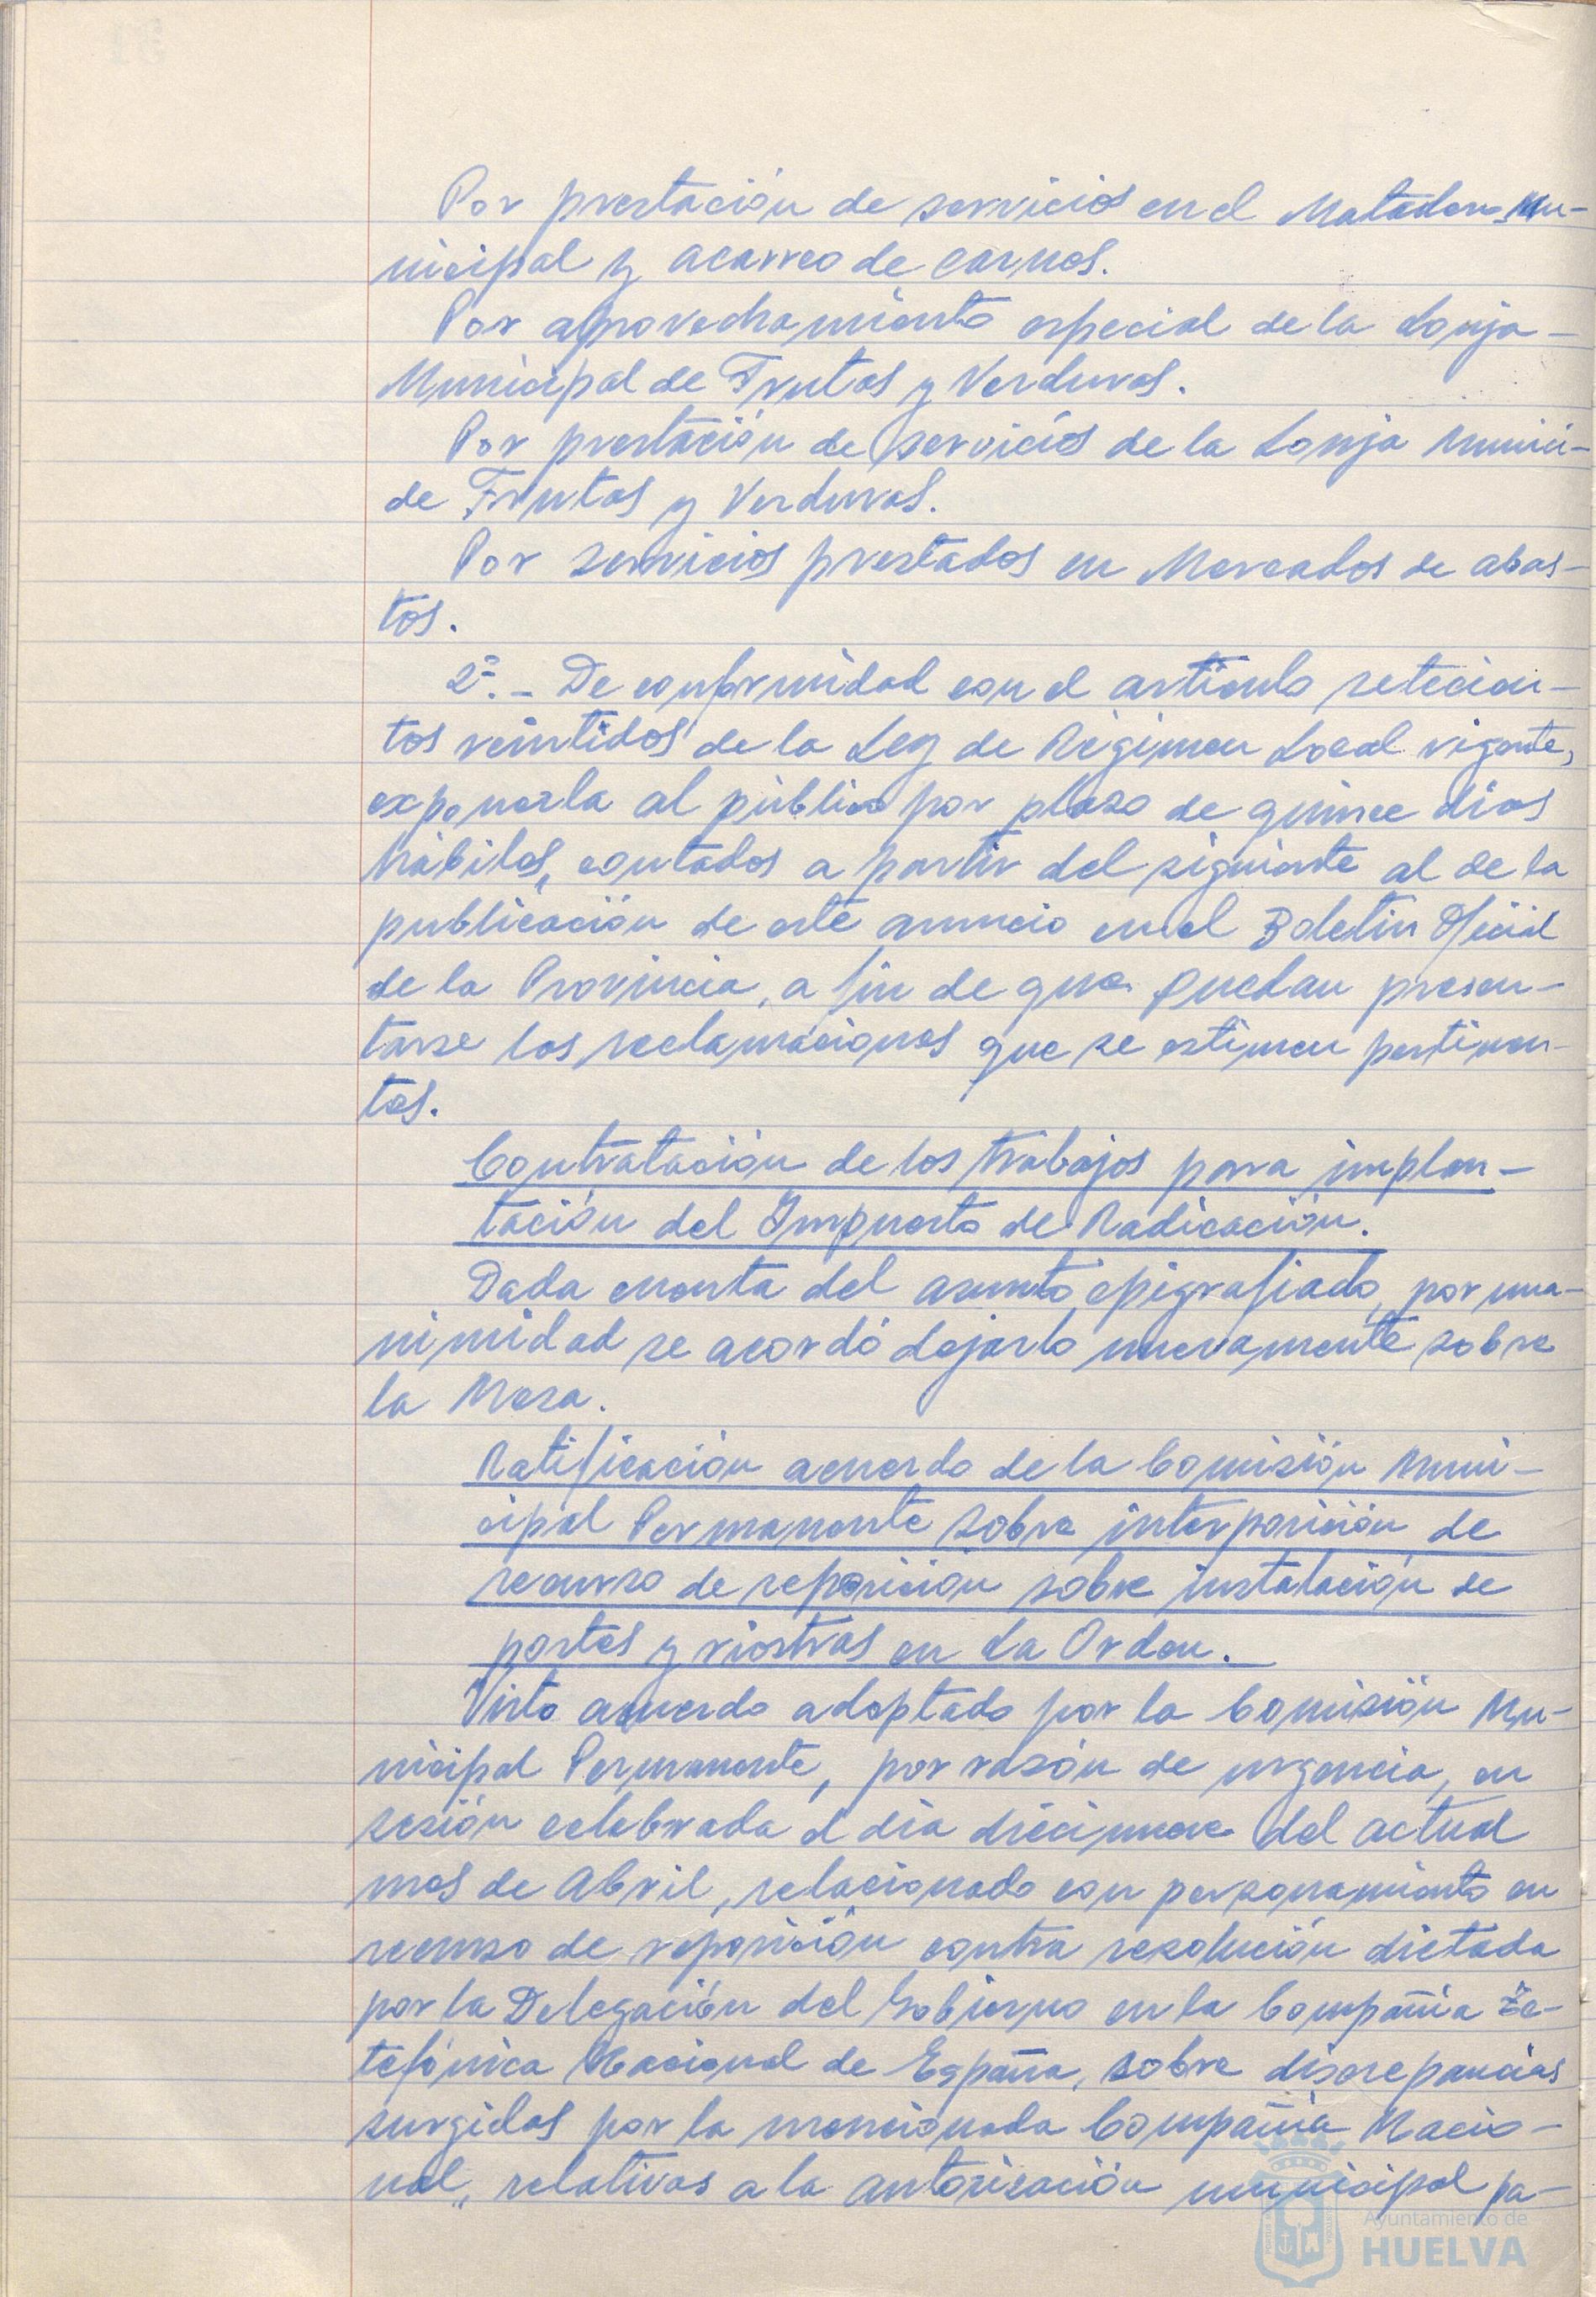 Por prestación de servicios en el Matadero Mu-
nicipal y acarreo de carnes.
Por aprovechamiento especial de la Lonja-
Municipal de Frutas y Verduras.
Por prestación de servicios de la Lonja Munici-
de Frutas y Verduras.
Por servicios prestados en Mercados de abas-
tos.
2º.- De conformidad con el artículo setecien-
tos veintidos de la Ley de Régimen Local vigente,
exponerla al público por plazo de quince días
hábiles, contados a partir del siguiente al de la
publicación de este anuncio en el Boletín Oficial
de la Provincia, a fin de que puedan presen-
tarse las reclamaciones que se estimen pertinen-
tes.
Contratación de los trabajos para implan-
tación del Impuesto de Radicación.
Dada cuenta del asunto epigrafiado, por una-
nimidad se acordó dejarlo nuevamente sobre
la Mesa.
Ratificación acuerdo de la Comisión Muni-
cipal Permanente sobre interposición de
recurso de reposición sobre instalación de
postes y riostras en La Orden.
Visto acuerdo adoptado por la Comisión Mu-
nicipal Permanente, por razón de urgencia, en
sesión celebrada el día diecinueve del actual
mes de Abril, relacionado con personamiento en
recurso de reposición contra resolución dictada
por la Delegación del Gobierno en la Compañía Te-
lefónica Nacional de España, sobre discrepancias
surgidas por la mencionada Compañía Nacio-
nal, relativas a la autorización municipal pa-
Ayuntamiento de
HUELVA